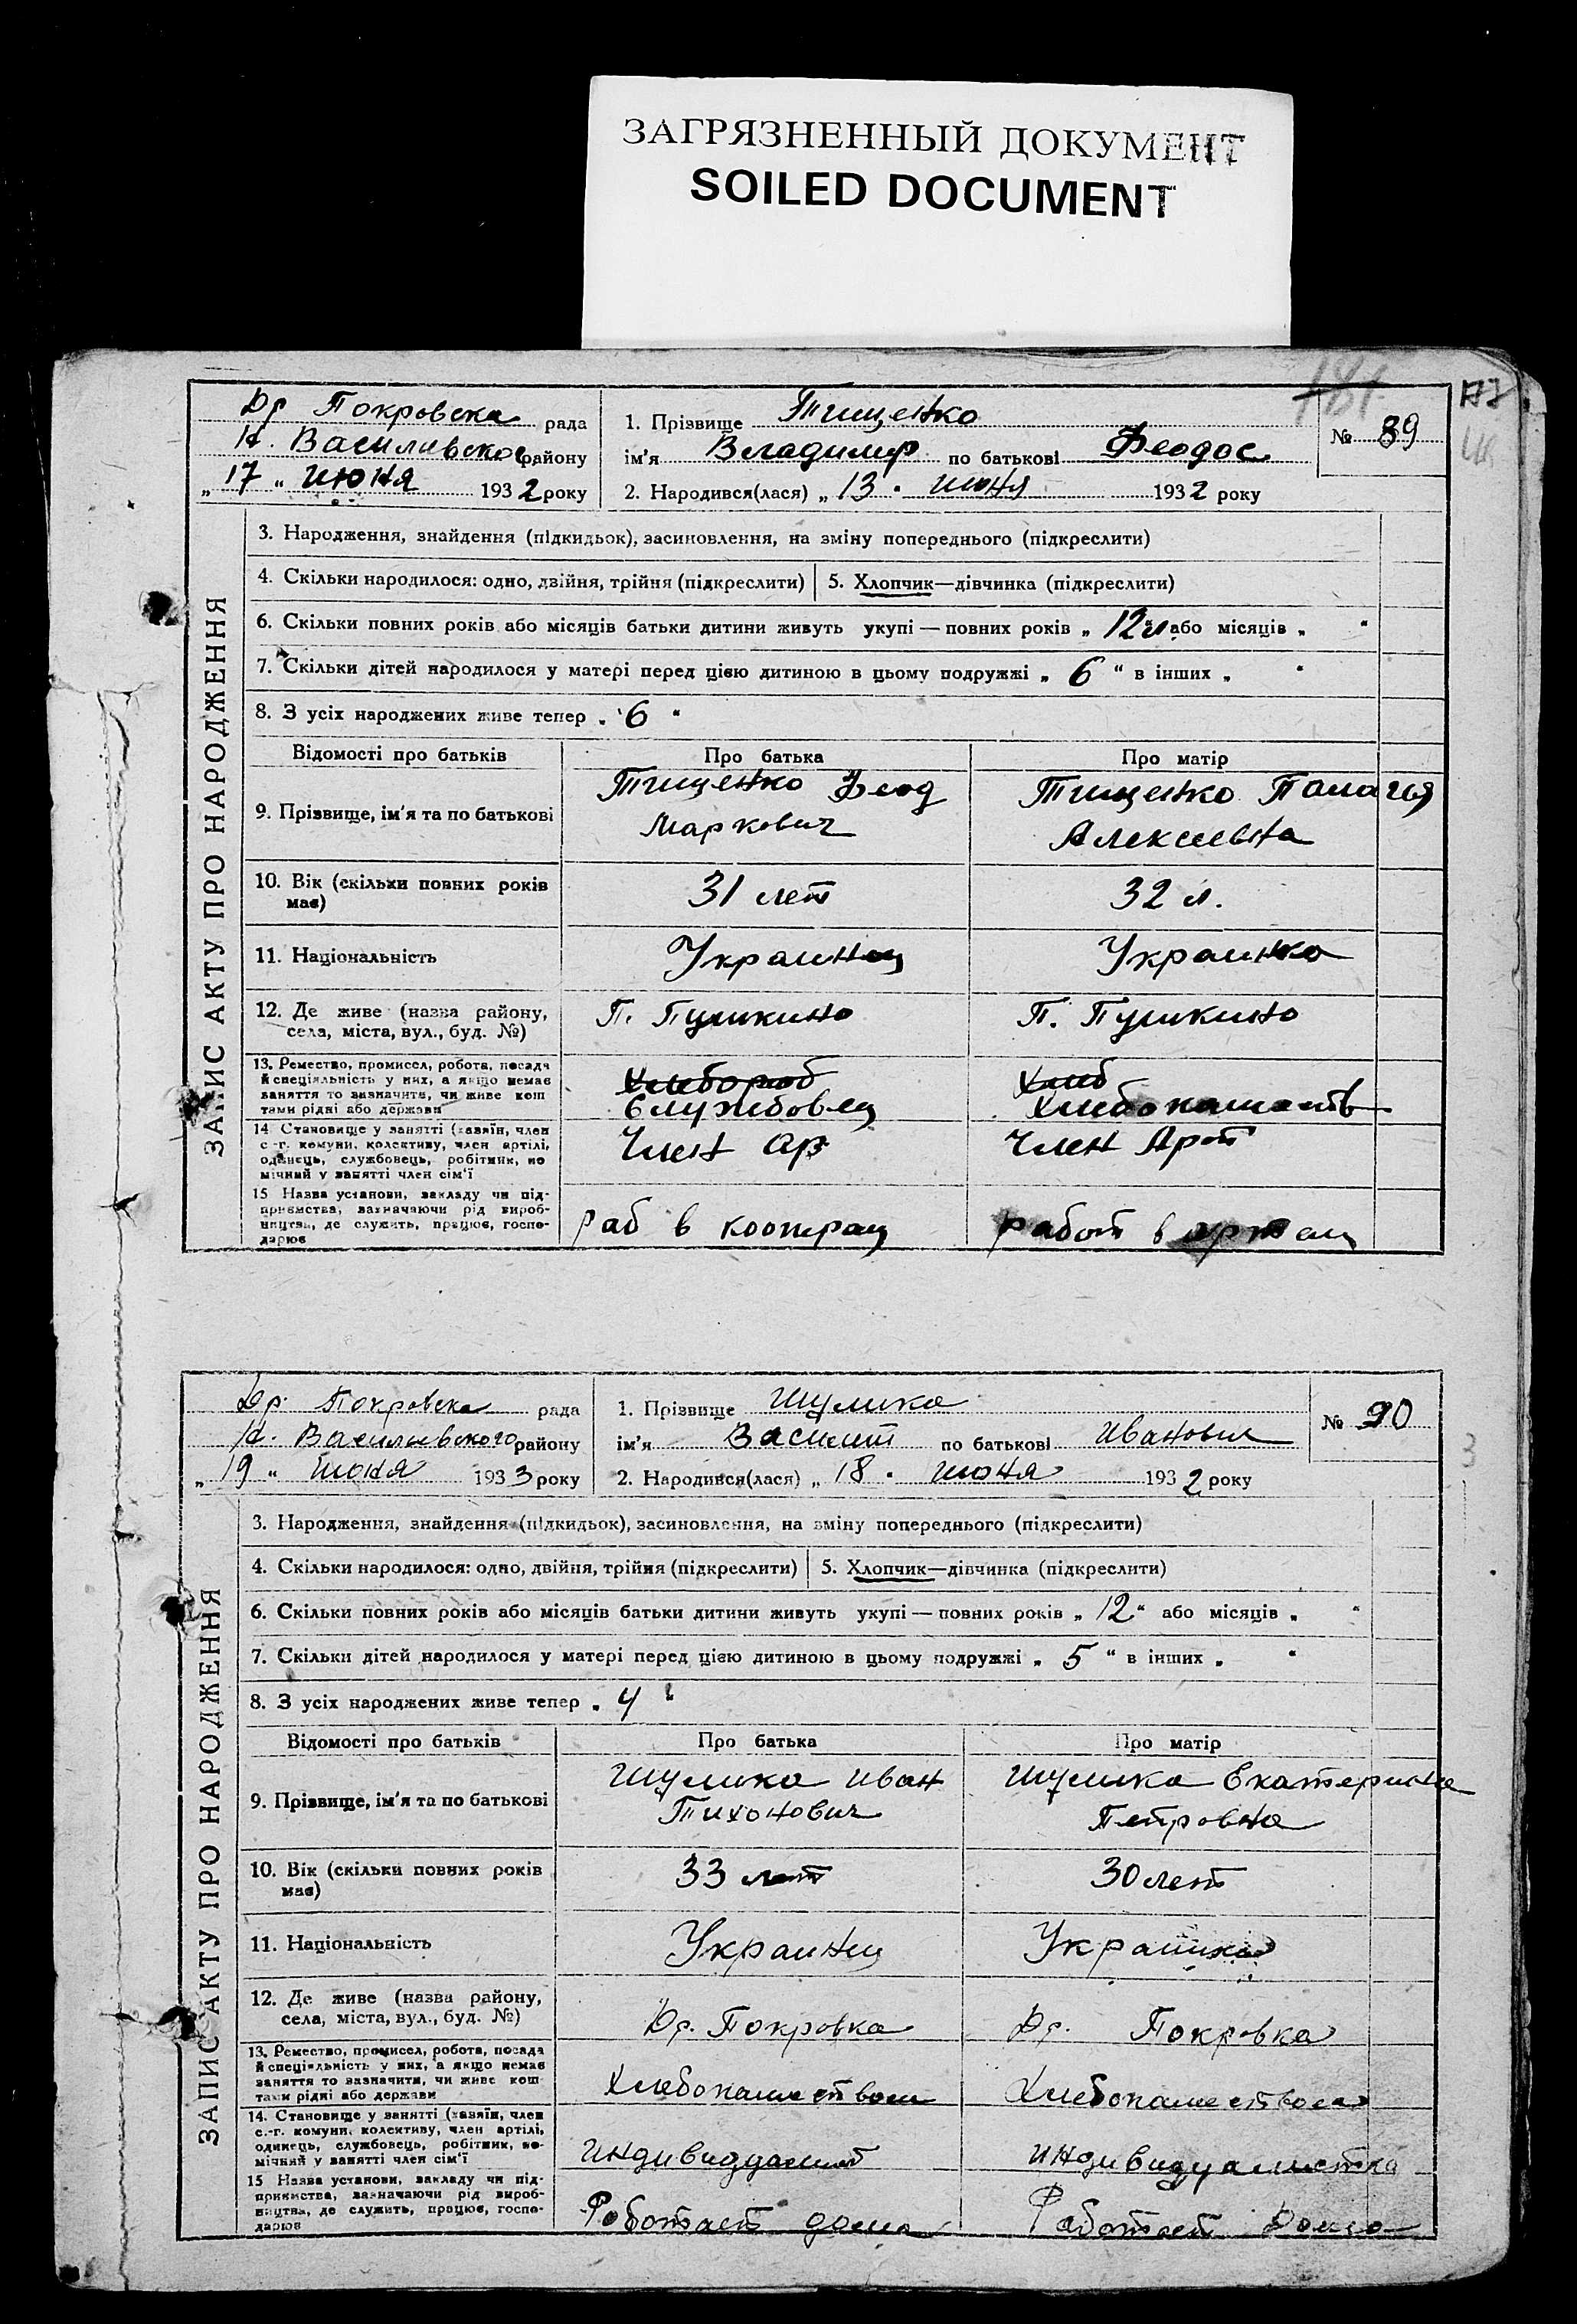 ЗАГРЯЗНЕННЫЙ ДОКУМЕНТ
SOILED DOCUMENT
Др Покровска рада
Н. Василивского району
„ 17 “ июня 1932 року
1. Прізвище Тищенко
ім'я Владимир по батькові Феодос
2. Народився(лася) „ 13 “ июня 1932 року
№ 89
ЗАПИС АКТУ ПРО НАРОДЖЕННЯ
3. Народження, знайдення (підкидьок), засиновлення, на зміну попереднього (підкреслити)
4. Скільки народилося: одно, двійня, трійня (підкреслити) 5. Хлопчик—дівчинка (підкреслити)
6. Скільки повних років або місяців батьки дитини живуть укупі — повних років „ 12 л або місяців „ “
7. Скільки дітей народилося у матері перед цією дитиною в цьому подружжі „ 6 “ в інших „ “
8. З усіх народжених живе тепер „ 6 “
Відомості про батьків Про батька Про матір
9. Прізвище, ім'я та по батькові
Тищенко Феод
Маркович
Тищенко Палагия
Алексеевна
10. Вік (скільки повних років має) 31 лет 32 л.
11. Національність Украинец Украинка
12. Де живе (назва району,
села, міста, вул., буд. №)
П. Пушкино П. Пушкино
13. Ремество, промисел, робота, посада
й спеціяльність у них, а якщо немає
заняття то зазначити, чи живе кош
тами рідні або держави
Хлебороб
Службовец
Хлеб
Хлебопашеств
14 Становище у занятті (хазяїн, член
с.-г. комуни, колективу, член артілі,
одинець, службовець, робітник, по
мічний у занятті член сім'ї
Член ар Член Арт
15 Назва установи, закладу чи під-
приємства, зазначаючи рід вироб-
ництва, де служить, працює, госпо-
дарює
раб в коопрац работ в артели
Др. Покровска рада
Н. Василивского району
„ 19 “ июня 1933 року
1. Прізвище Шулика
ім'я Василит по батькові Иванович
2. Народився(лася) „ 18 “ июня 1932 року
№ 90
ЗАПИС АКТУ ПРО НАРОДЖЕННЯ
3. Народження, знайдення (підкидьок), засиновлення, на зміну попереднього (підкреслити)
4. Скільки народилося: одно, двійня, трійня (підкреслити) 5. Хлопчик—дівчинка (підкреслити)
6. Скільки повних років або місяців батьки дитини живуть укупі — повних років „ 12 “ або місяців „ “
7. Скільки дітей народилося у матері перед цією дитиною в цьому подружжі „ 5 “ в інших „ “
8. З усіх народжених живе тепер „ 4 “
Відомості про батьків Про батька Про матір
9. Прізвище, ім'я та по батькові
Шулика Иван
Тихонович
Шулика Екатерина
Петровна
10. Вік (скільки повних років має) 33 лет 30 лет
11. Національність Украинец Украинка
12. Де живе (назва району,
села, міста, вул., буд. №)
Др. Покровка Др. Покровка
13. Ремество, промисел, робота, посада
й спеціяльність у них, а якщо немає
заняття то зазначити, чи живе кош
тами рідні або держави
Хлебопашеством Хлебопашеством
14. Становище у занятті (хазяїн, член
с.-г. комуни, колективу, член артілі,
одинець, службовець, робітник, по-
мічний у занятті член сім'ї
индивидуалист индивидуалистка
15 Назва установи, закладу чи під-
приємства, зазначаючи рід вироб-
ництва, де служить, працює, госпо-
дарює
Работает дома Работает Дома